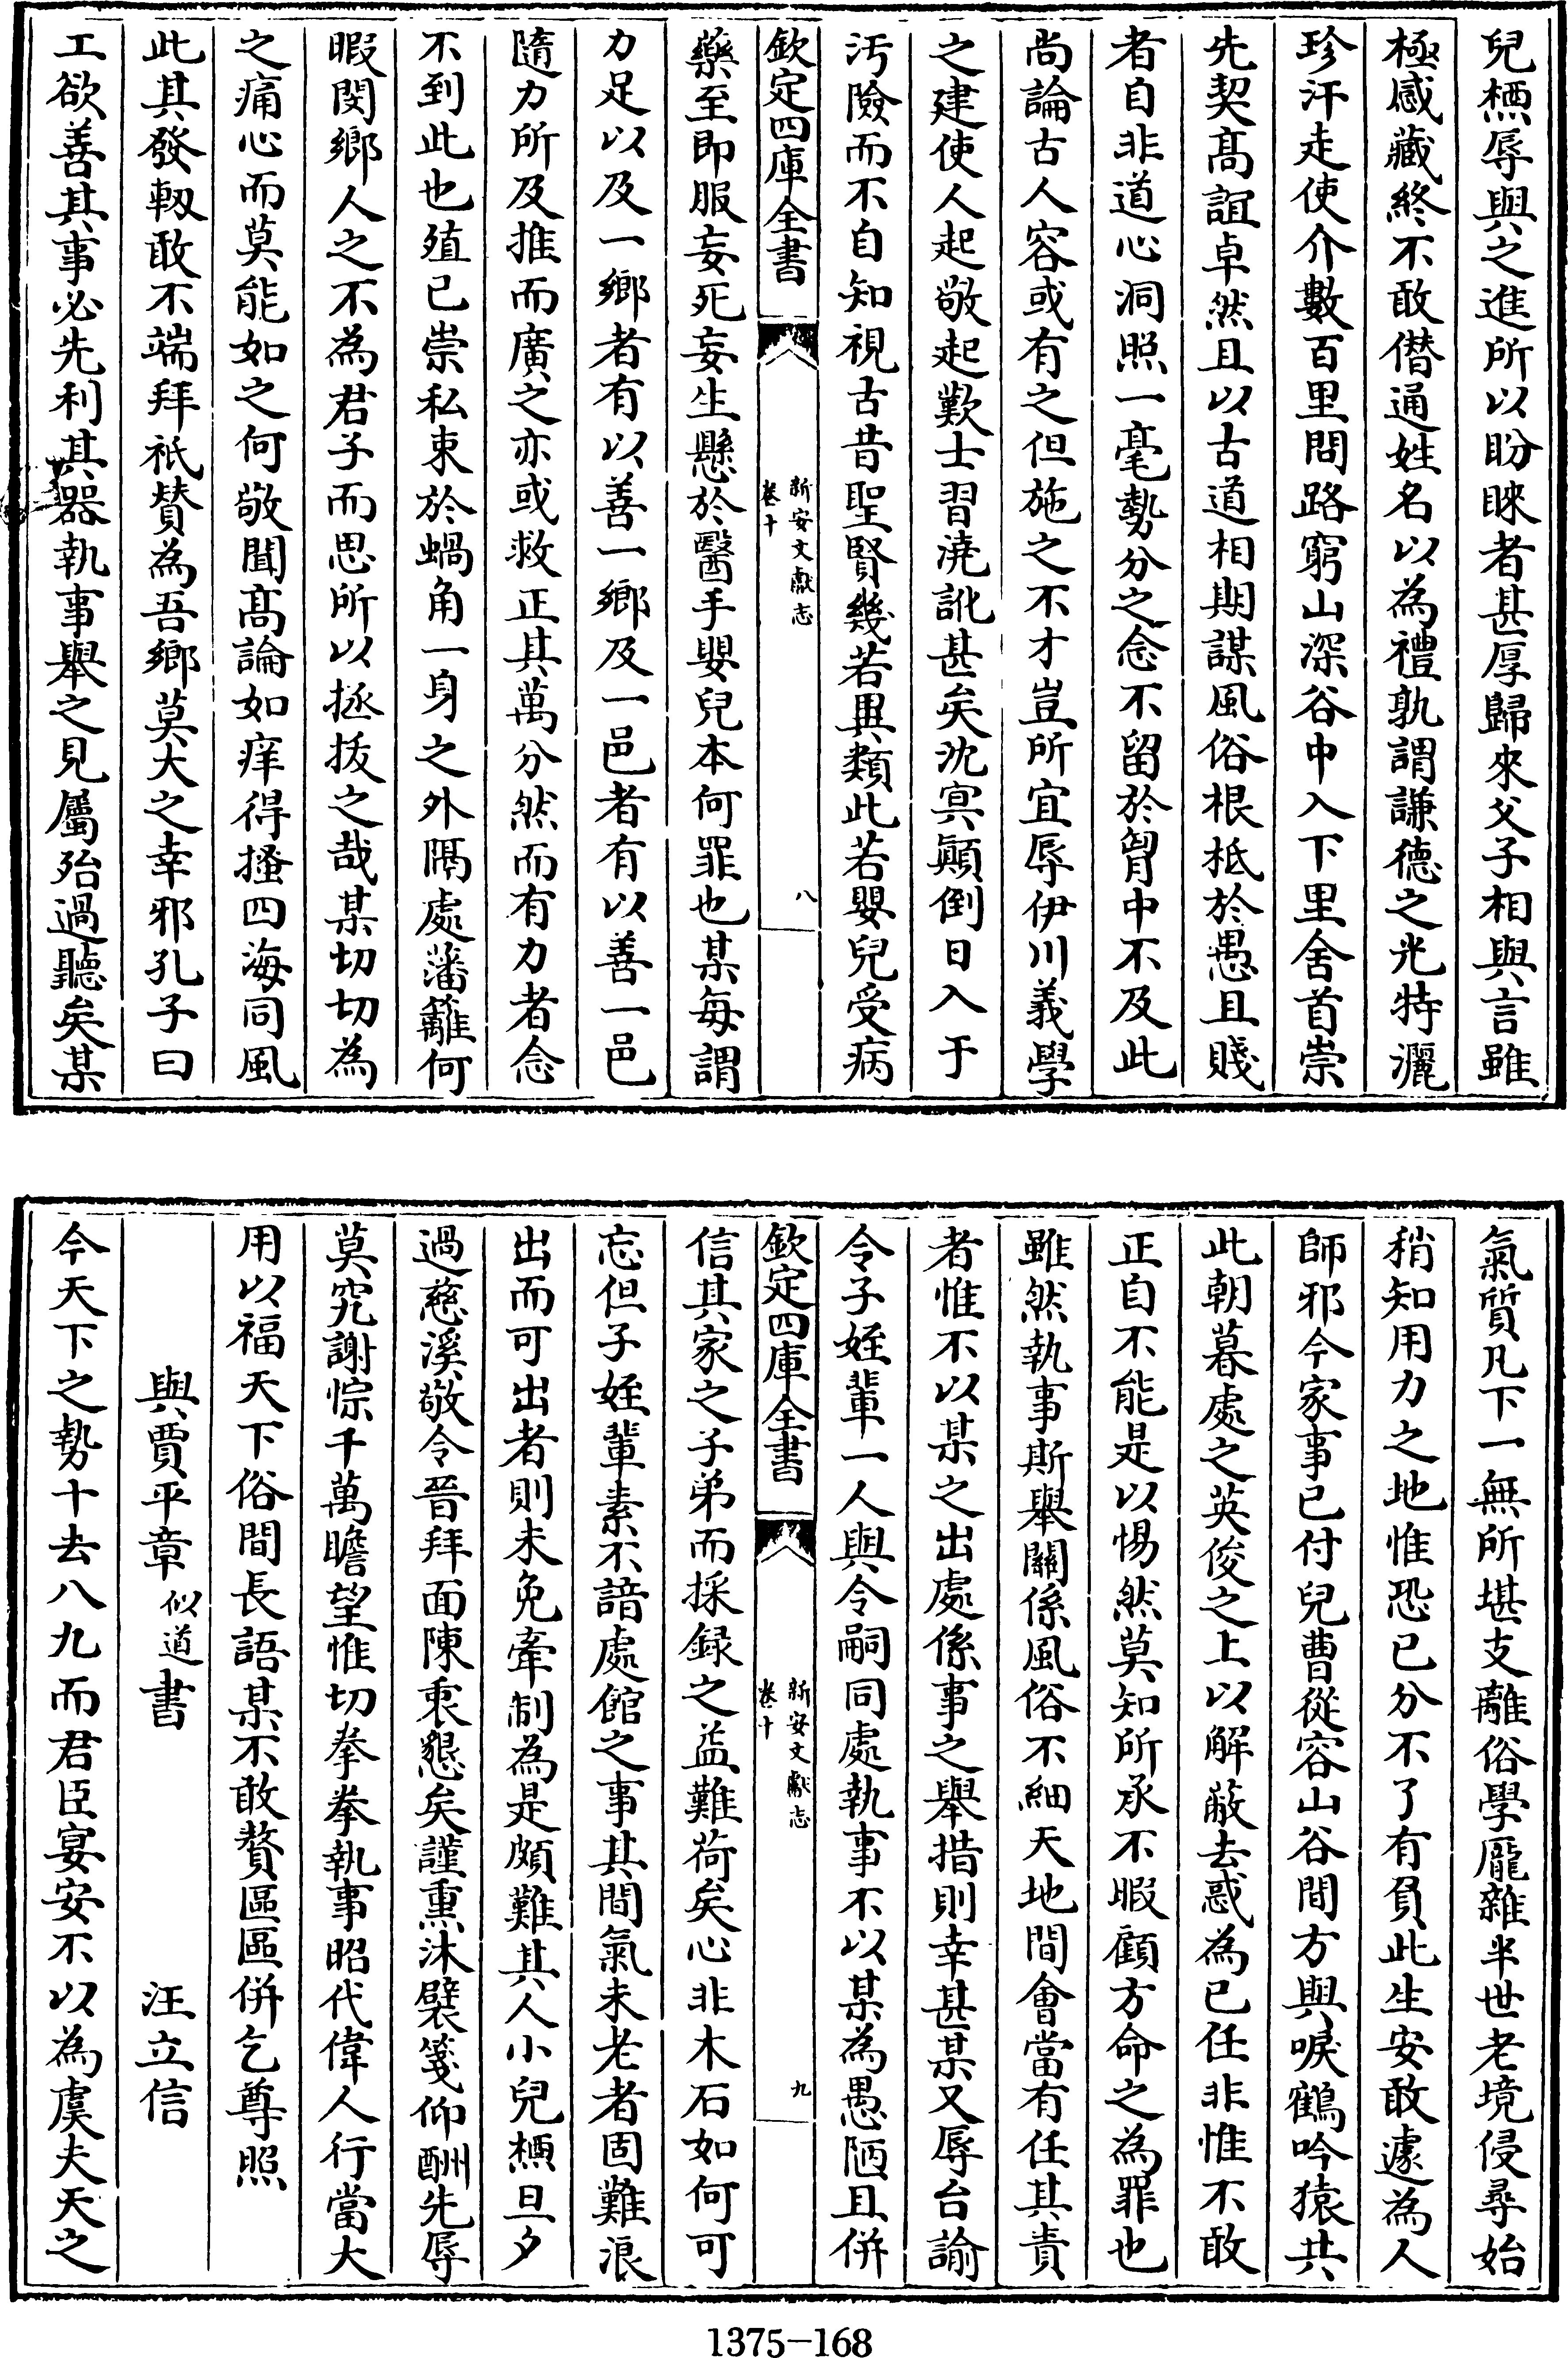 兒栖辱與之進所以盼睞者甚厚歸來父子相與言雖
極感藏終不敢僣通姓名以為禮孰謂謙德之光特灑
珍汗走使介數百里問路窮山深谷中入下里舍首崇
先契髙誼卓然且以古道相期謀風俗根柢於愚且賤
者自非道心洞照一毫勢分之念不留於胷中不及此
尚論古人容或有之但施之不才豈所宜辱伊川義學
之建使人起敬起歎士習澆訛甚矣沈冥顚倒日入于
汚險而不自知視古昔聖賢幾若異類此若嬰兒受病
欽定四庫全書
新安文獻志
卷十
八
藥至即服妄死妄生懸於醫手嬰兒本何罪也某每謂
力足以及一鄉者有以善一鄉及一邑者有以善一邑
隨力所及推而廣之亦或救正其萬分然而有力者念
不到此也殖已崇私束於蝸角一身之外隔處藩籬何
暇閔鄉人之不為君子而思所以拯拔之哉某切切為
之痛心而莫能如之何敬聞髙論如痒得搔四海同風
此其發軔敢不端拜祇賛為吾鄉莫大之幸邪孔子曰
工欲善其事必先利其器執事舉之見屬殆過聽矣某
氣質凡下一無所堪支離俗學厖雜半世老境侵尋始
稍知用力之地惟恐已分不了有負此生安敢遽為人
師邪今家事已付兒曹從容山谷間方與唳鶴吟猿共
此朝暮處之英俊之上以解蔽去惑為已任非惟不敢
正自不能是以惕然莫知所承不暇顧方命之為罪也
雖然執事斯舉關係風俗不細天地間會當有任其責
者惟不以某之出處係事之舉措則幸甚某又辱台諭
令子姪輩一人與令嗣同處執事不以某為愚陋且併
欽定四庫全書
新安文獻志
卷十
九
信其家之子弟而採録之益難荷矣心非木石如何可
忘但子姪輩素不諳處館之事其間氣未老者固難浪
出而可出者則未免牽制為是頗難其人小兒栖旦夕
過慈溪敬令晉拜面陳衷懇矣謹熏沐襞箋仰酬先辱
莫究謝悰千萬瞻望惟切拳拳執事昭代偉人行當大
用以福天下俗間長語某不敢贅區區併乞尊照
與賈平章似道書 汪立信
今天下之勢十去八九而君臣宴安不以為虞夫天之
1375-168